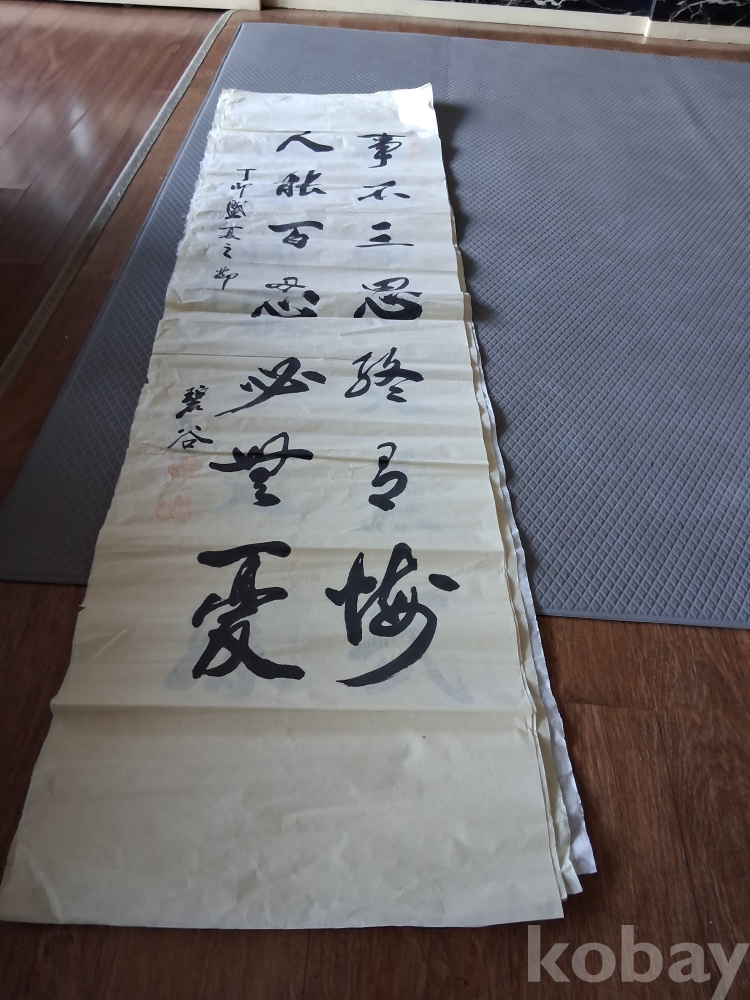 事不三思終有悔
人能百忍必無憂
丁卯盛夏之節
碧谷
kobay